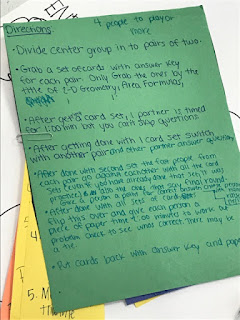 Directions:
4 people to play or
more
• Divide center group in to pairs of two.
• Grab a set of cards with answer key
for each pair Only Grab the ones by the
title of 2-D Geometry, Area Formulas,
• After get a card set, 1 partner is timed
for 1:00 min but you can't skip questions
• After getting done with 1 card set switch
with another pair and other partner answer questions
• After done with second set the four people. Even
each pair go against each other with all the card
sets (even if you have already done that set, it was
practice)
gives a person a point for
• After done with all sets of cards
flip this over and give each person a
piece of paper time 2:00 minutes to work out
problem check to see who's correct. There may be
a tie.
• Put cards back with answer key and paper
5. M